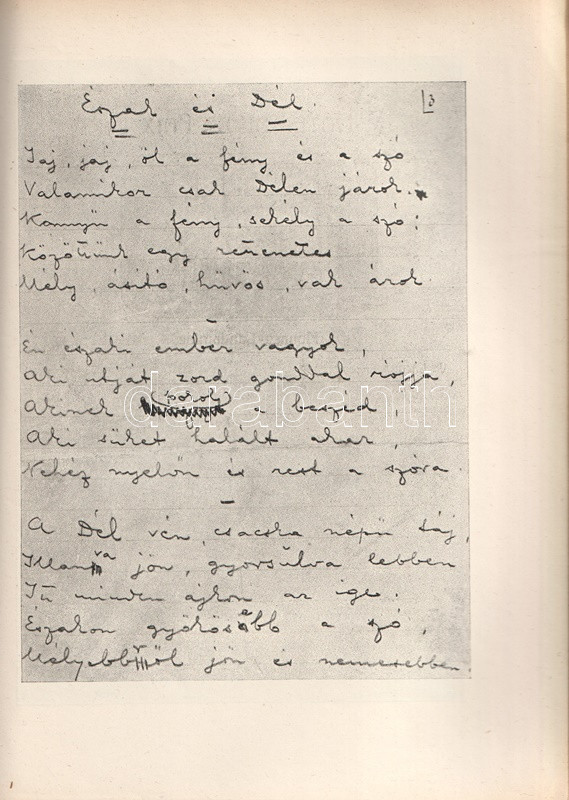 Észak és Dél.
3
Jaj, jaj, öl a fény és a szó
Valamikor csak Délen járok.
Könnyü a fény, sekély a szó:
Közöttünk egy rettenetes
Mély, ásító, hüvös, vak árok
Én északi ember vagyok,
Aki utját zord gonddal rójja,
Akinek pokol a beszéd,
Aki süket halált akar,
Nehéz nyelvü és rest a szóra.
A Dél vén, csacska népü táj,
Illanva jön, gyorsulva lebben
Itt minden ajkon az ige.
Északon gyökösebb a szó,
Mélyebbről jön és nemesebben.
darabanth